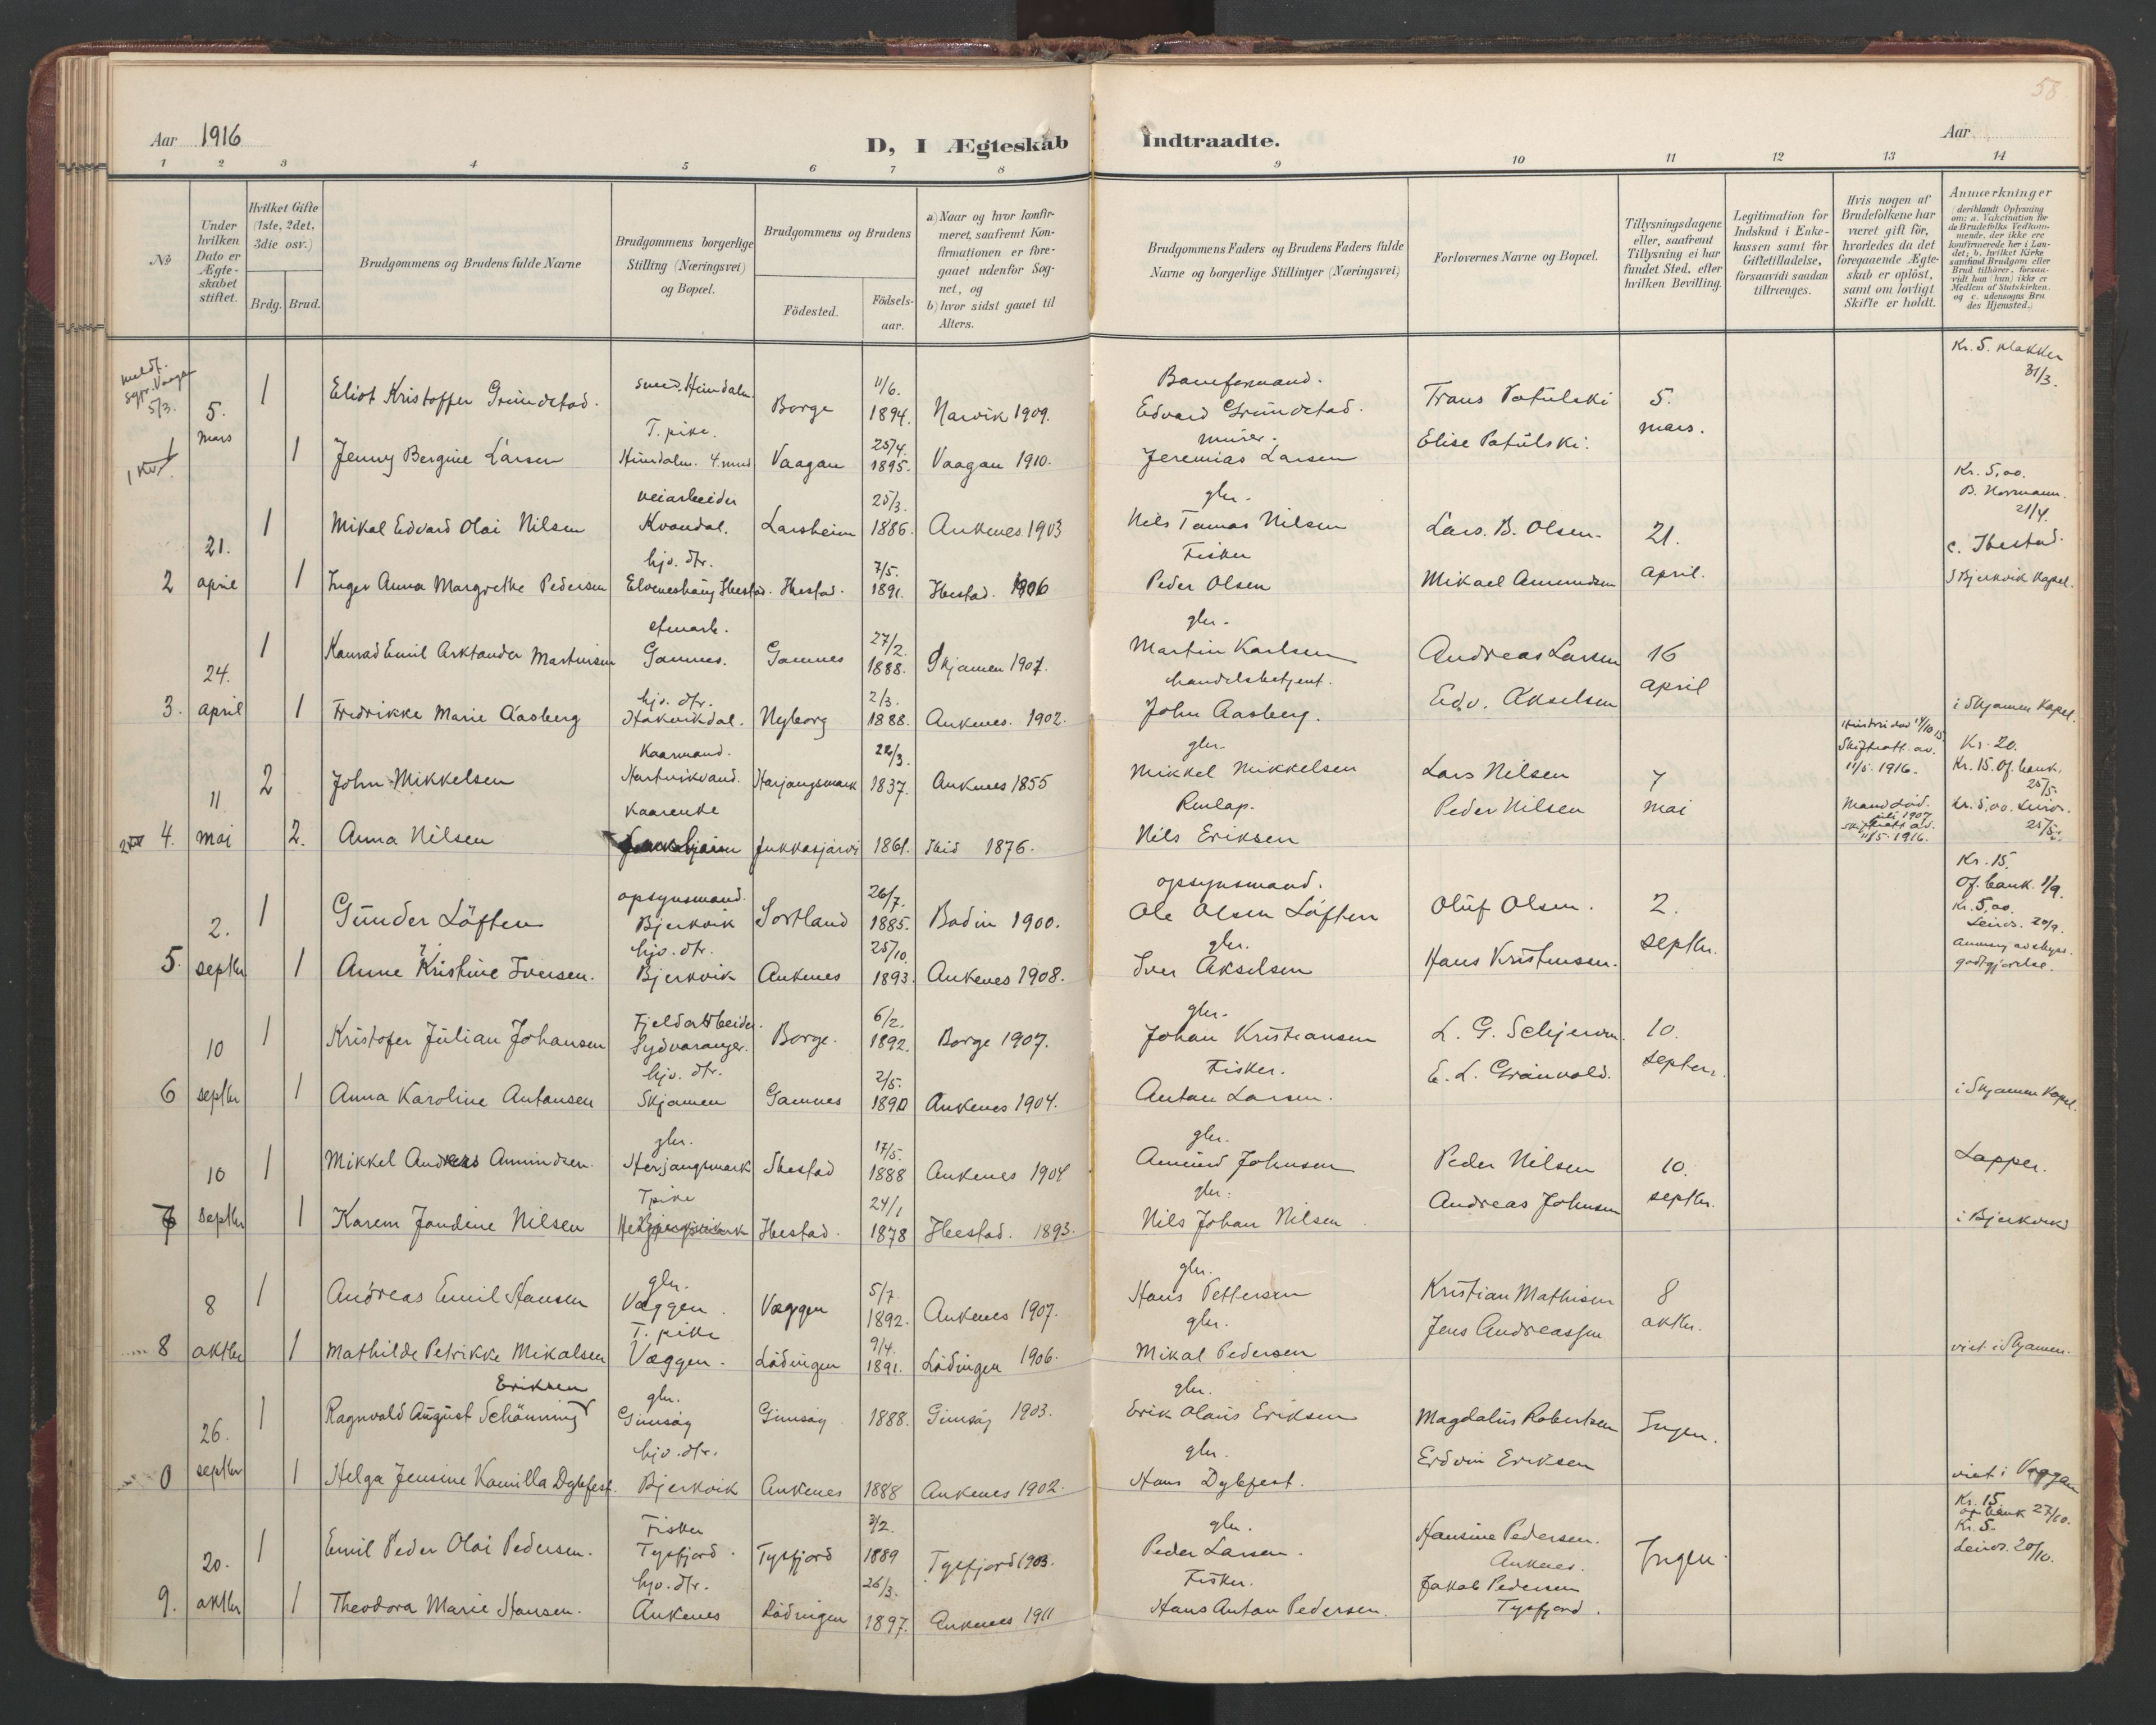 58
Aar 1916
D, I Ægteskab Indtraadte.
Aar
1 2 3 4 5 6 7 8 9 10 11 12 13 14
No
Under hvilken Dato er Ægteskabet stiftet.
Hvilket Gifte (1ste, 2det, 3die osv.)
Brdg. Brud.
Brudgommens og Brudens fulde Navne
Brudgommens borgerlige Stilling (Næringsvei) og Bopæl.
Brudgommens og Brudens
Födested.
Födsels-aar.
a) Naar og hvor konfirmeret, saafremt Konfirmationen er foregaaet udenfor Sognet, og
b) hvor sidst gaaet til Alters.
Brudgommens Faders og Brudens Faders fulde Navne og borgerlige Stillinger (Næringsvei)
Forlovernes Navne og Bopæl.
Tillysningsdagene eller, saafremt Tillysning ei har fundet Sted, efter hvilken Bevilling.
Legitimation for Indskud i Enkekassen samt for Giftetilladelse, forsaavidt saadan tiltrænges.
Hvis nogen af Brudefolkene har været gift før, hvorledes da det foregaaende Ægteskab er oplöst, samt om lovligt Skifte er holdt.
Anmærkninger (deriblandt Oplysning om: a. Vakcination for de Brudefolks Vedkommende, der ikke ere konfirmerede her i Landet; b. hvilket Kirkesamfund Brudgom eller Brud tilhörer, forsaavidt han (hun) ikke er Medlem af Statskirken. og c. udensogns Brudes Hjemsted.)
5/3.
5. mars 1 Eliot Kristoffer Grundstad. smed. Hundalen Borge 11/6. 1894. Narvik 1909. Baneformand. Edvard Grundstad. Frans Patulski 5. mars. Kr. 5. 31/3.
1 Jenny Bergine Larsen T. pike. Hundalen. 4. mnd Vaagan 25/4. 1895. Vaagan 1910. murer. Jeremias Larsen Elise Patulski.
2 21. april 1 Mikal Edvard Olai Nilsen veiarbeider Kvandal. Larsheim 25/3. 1886. Ankenes 1903 gbr. Nils Tomas Nilsen Lars. B. Olsen. 21. april. Kr. 5,00. B. Normann. 21/4.
1 Inger Anna Margrethe Pedersen hjv. dtr. Ibestad. 7/5. 1891. Ibestad. 1906 Fisker Peder Olsen Mikael Amundsen c. Ibestad. I Bjerkvik Kapel.
3. 24. april 1 Konrad Emil Arktander Martinsen Gamnes. Gamnes 27/2. 1888. Skjomen 1907. gbr. Martin Karlsen Andreas Larsen 16 april
1 Fredrikke Marie Aasberg hjv. dtr. Haakvikdal. Nyborg 2/3. 1888. Ankenes. 1902. handelsbetjent. John Aasberg. Edv. Akselsen i Skjomen Kapel.
4. 11 mai 2 John Mikkelsen Kaarmand. Hartvikvand. Harjangsmark 22/3. 1837. Ankenes 1855 gbr. Mikkel Mikkelsen Lars Nilsen 7 mai Skifteatt. av. 11/5. 1916. Kr. 20. Kr. 15. Of. bank. 25/5.
2. Anna Nilsen Kaarenke Jukkasjärvi 1861. Ibid 1876. Renlap. Nils Eriksen Peder Nilsen Mand död. juli 1907 Skifteatt av. 11/5-1916. Kr. 5,00. 25/5.
5. 2. septbr 1 Gunder Löften opsynsmand. Bjerkvik Sortland 26/7. 1885. Bodin 1900. opsynsmand. Ole Olsen Löften Oluf Olsen. 2. septbr. Kr. 15. Of. bank. 1/9. Kr. 5,00. 20/9.
1 Anne Kristine Iversen. hjv. dtr. Bjerkvik Ankenes 25/10. 1893. Ankenes 1908. gbr. Iver Akselsen Hans Kristensen. godtgjørelse.
6 10 septbr 1 Kristofer Julian Johansen Fjeldarbeider. Sydvaranger. Borge. 6/2. 1892. Borge 1907. gbr. Johan Kristiansen 10. septbr.
1 Anna Karoline Antonsen hjv. dtr. Skjomen Gamnes 2/5. 1890 Ankenes 1904. Fisker. Anton Larsen. E. L. Grönvold. i Skjomen Kapel.
7 10 septbr 1 Mikkel Andreas Amundsen. gbr. Herjangsmark Ibestad 17/5. 1888 Ankenes 1904 gbr. Amund Johnsen Peder Nilsen 10. septbr. Lapper.
1 Karen Jondine Nilsen T pike Ibestad. 24/1 1878 Ibestad. 1893. gbr. Nils Johan Nilsen Andreas Johnsen i Bjerkvik
8 8 oktbr 1 Andreas Emil Hansen gbr. Væggen. Væggen 5/7. 1892. Ankenes 1907. gbr. Hans Pettersen Kristian Mathisen 8 oktbr.
1 Mathilde Petrikke Mikalsen T. pike Væggen. Lödingen 9/4. 1891. Lödingen 1906. gbr. Mikal Pedersen Jens Andreassen viet i Skjomen.
0 26. septbr 1 Ragnvald August Schönning Eriksen gbr. Gimsöy Gimsöy. 1888. Gimsöy 1903. gbr. Erik Olaus Eriksen Magdalus Robertsen Ingen.
1 Helga Jensine Kamilla Dybfest. hjv. dtr. Bjerkvik Ankenes 1888 Ankenes 1902. gbr. Hans Dybfest. Edvin Eriksen viet i Vaagan
9. 20. oktbr 1 Emil Peder Olai Pedersen. Fisker Tysfjord. Tysfjord 3/2. 1889 Tysfjord 1903. gbr. Peder Larsen. Hansine Pedersen. Ankenes. Ingen. Kr. 15 of. bank 27/10. Kr. 5. 20/10.
1 Theodora Marie Hansen. hjv. dtr. Ankenes Lödingen 26/3. 1897. Ankenes 1911 Fisker. Hans Anton Pedersen. Jakob Pedersen Tysfjord.